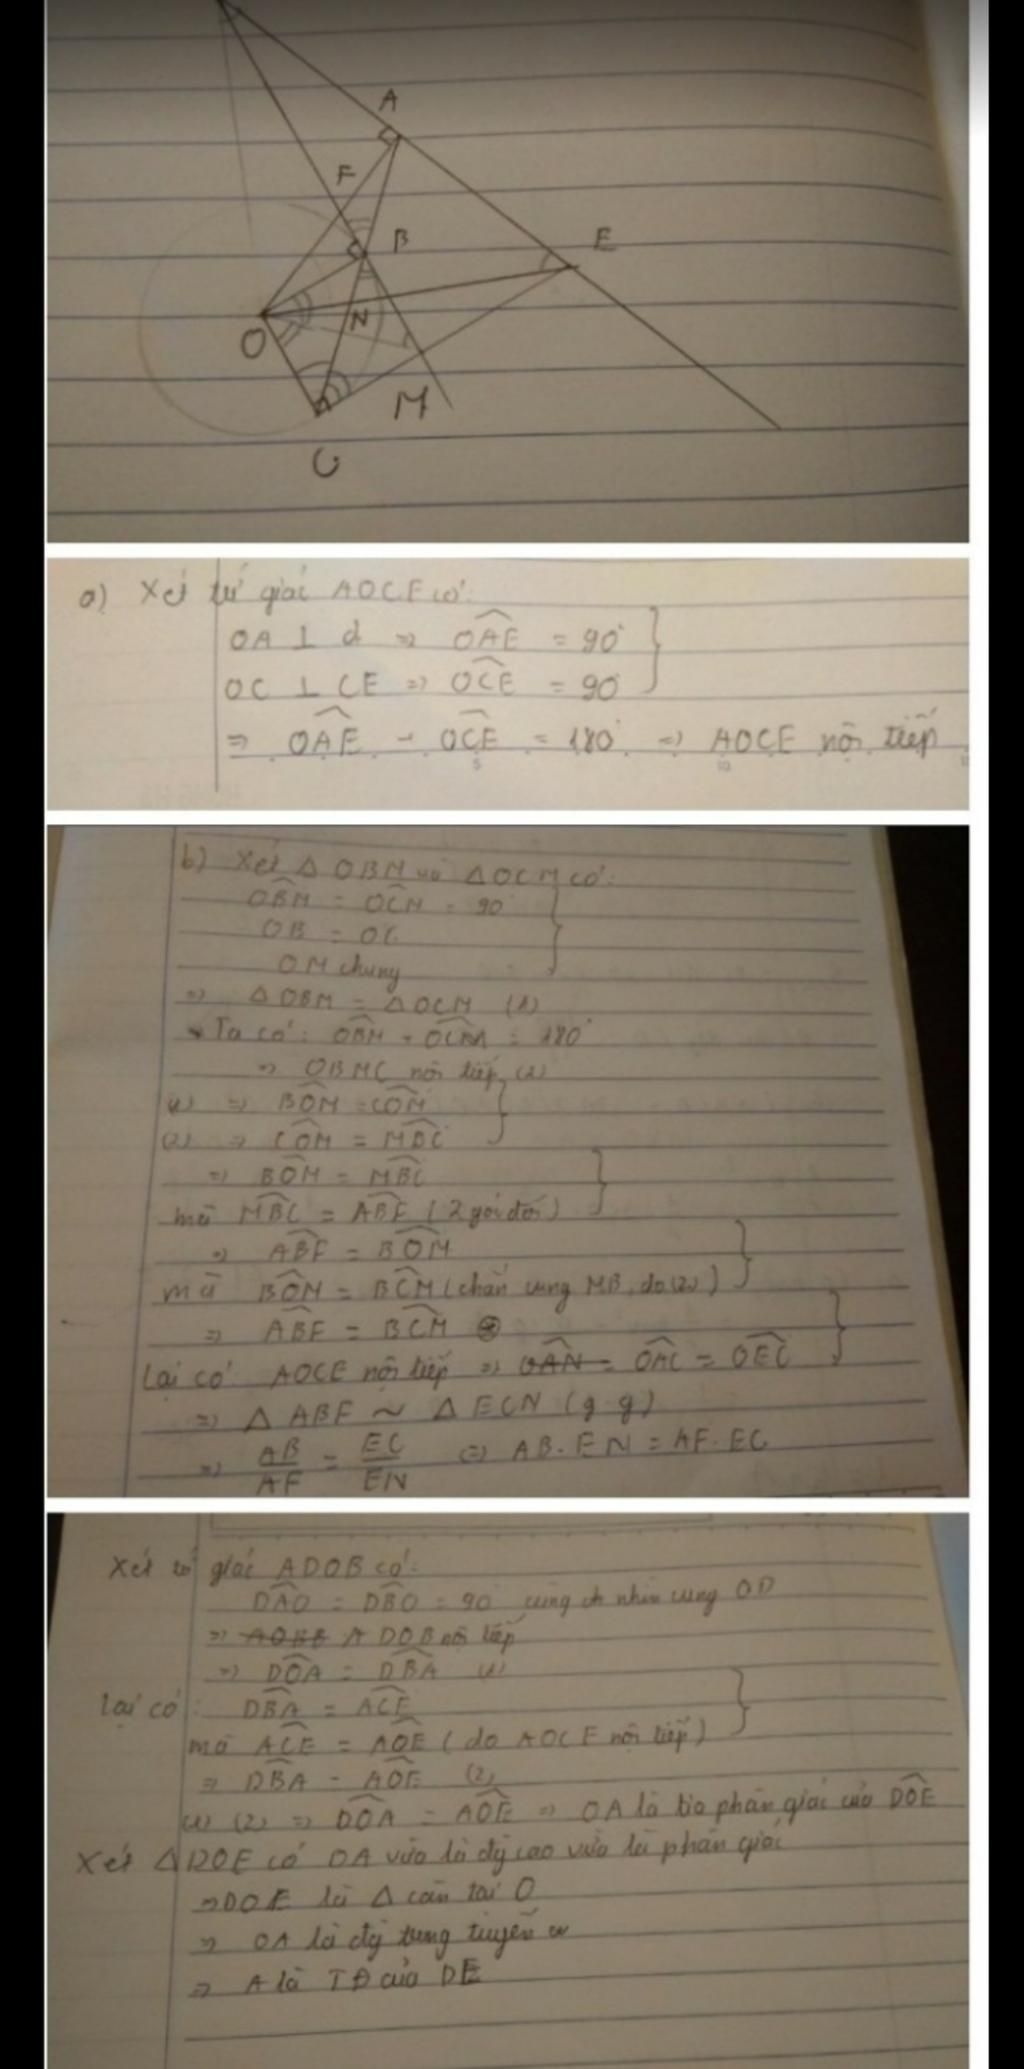 A
F
B
E
O
N
M
C
a) Xét tứ giác AOCE có:
OA ⊥ d => OAE = 90°
OC ⊥ CE => OCE = 90°
=> OAE - OCE = 180° => AOCE nội tiếp
b) Xét △ OBM và △ OCM có:
OBM = OCM = 90°
OB = OC
OM chung
=> △ OBM = △ OCM (1)
Ta có: OBM + OCM = 180°
=> OBMC nội tiếp (2)
(1) => BOM = COM
(2) => COM = MBC
=> BOM = MBC
mà MBC = ABF (2 góc đối)
=> ABF = BOM
mà BOM = BCM (chắn cung MB, do (2))
=> ABF = BCM
Lại có: AOCE nội tiếp => OAN = OAC = OEC
=> △ ABF ~ △ ECN (g.g)
=> AB/AF = EC/EN (=) AB.EN = AF.EC
Xét tứ giác ADOB có:
DAO = DBO = 90° cùng nhìn cung OD
=> ADOB nội tiếp
=> DOA = DBA (1)
Lại có: DBA = ACE
mà ACE = AOE (do AOCE nội tiếp)
=> DBA = AOE (2)
(1) (2) => DOA = AOE => OA là tia phân giác của DOE
Xét △DOE có OA vừa là đg cao vừa là phân giác
=> DOE là △ cân tại O
=> OA là đg trung tuyến
=> A là TĐ của DE